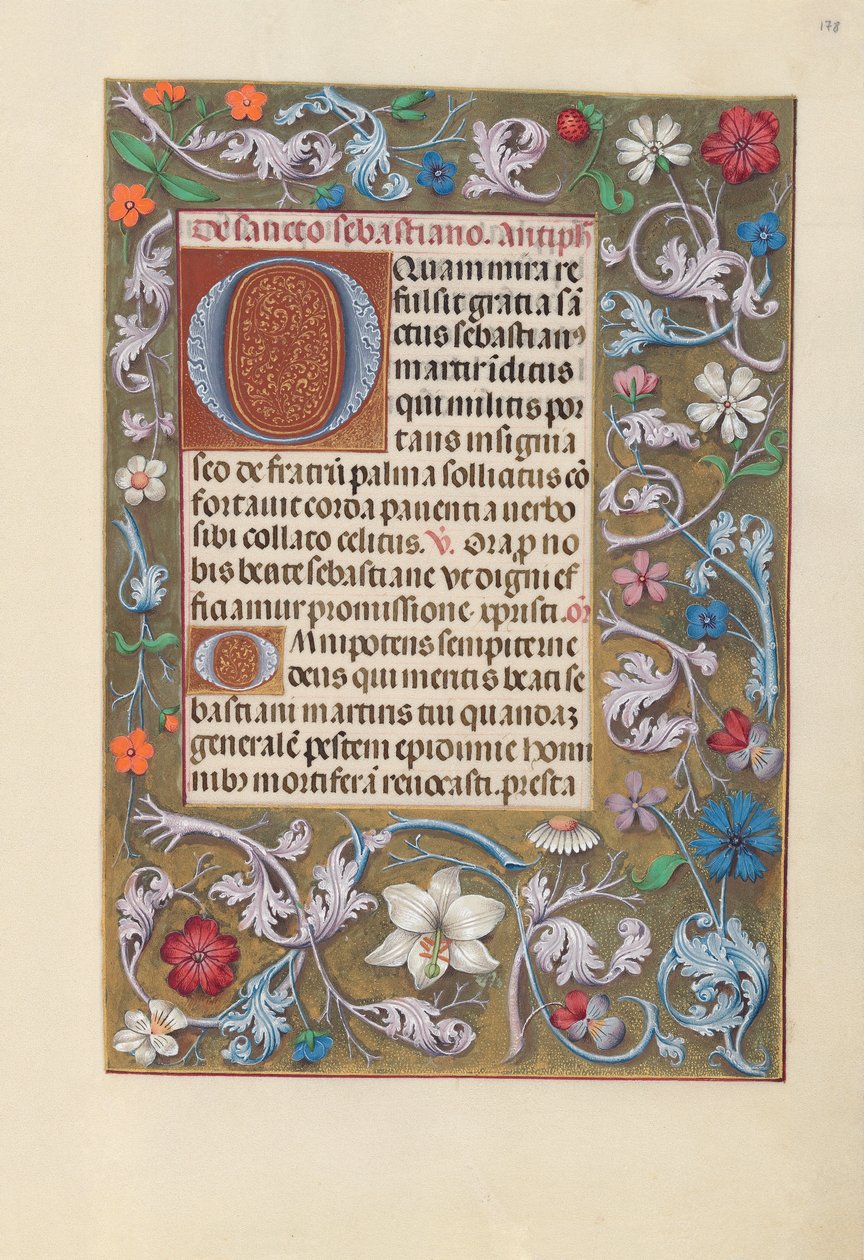 178
De sancto sebastiano. Antiph̄
OQuam mira re
fulsit gratia sā
ctus sebastianꝰ
martir īclitus
qui militis por
tans insignia
sed de fratrū palma sollicitus cō
fortauit corda pauentia uerbo
sibi collato celitus. V̇. Ora ꝓ no
bis beate sebastiane vt digni ef
ficiamur promissione xpristi. or̄
OMnipotens sempiterne
deus qui meritis beati se
bastiani martiris tui quandaʒ
generalē pestem epidimie homi
nibꝫ mortiferā reuocasti. presta